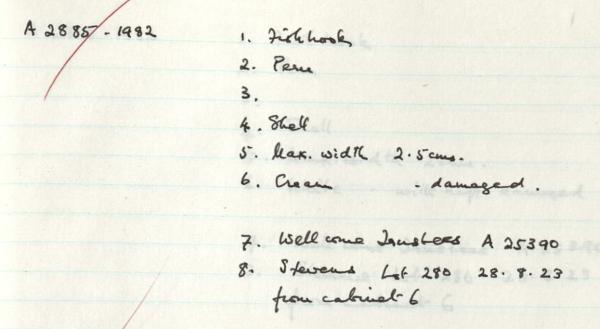 A 2885-1982
1. Fishhooks
2. Peru
3.
4. Shell
5. Max. width 2.5cms.
6. Cream - damaged.
7. Wellcome Trustees A 25390
8. Stevens Lot 280 28.8.23
from cabinet 6